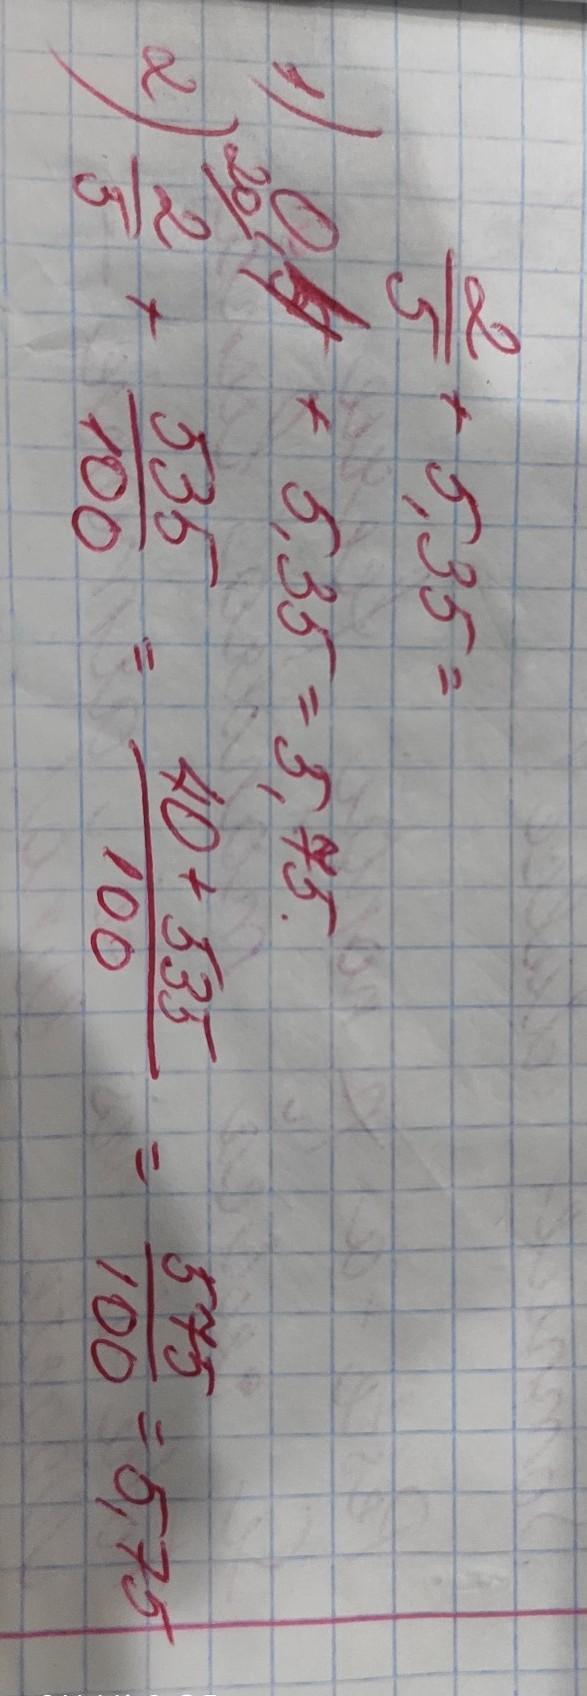 2/5 + 5,35 =
1) 0,4 + 5,35 = 5,75.
2) 20/ 2/5 + 535/100 = 40 + 535/100 = 575/100 = 5,75